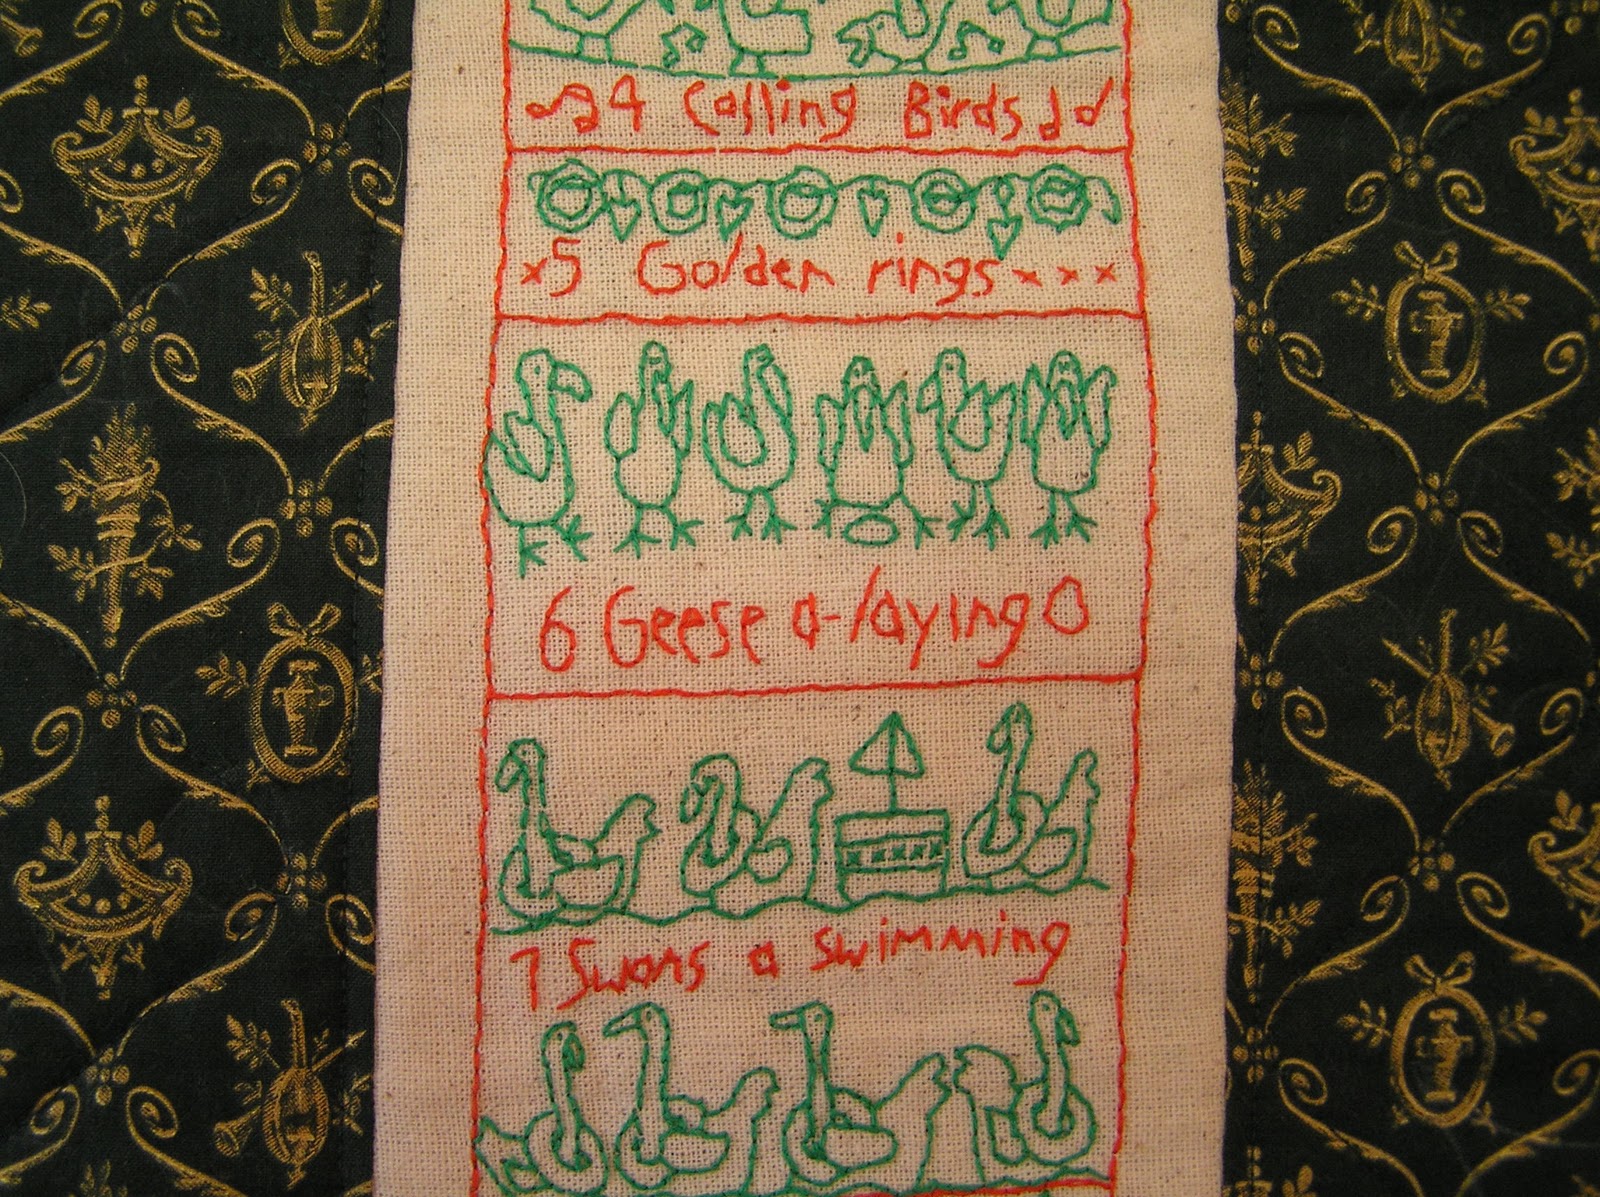 4 Calling Birds
x5 Golden rings xxx
6 Geese a-laying
7 Swans a swimming